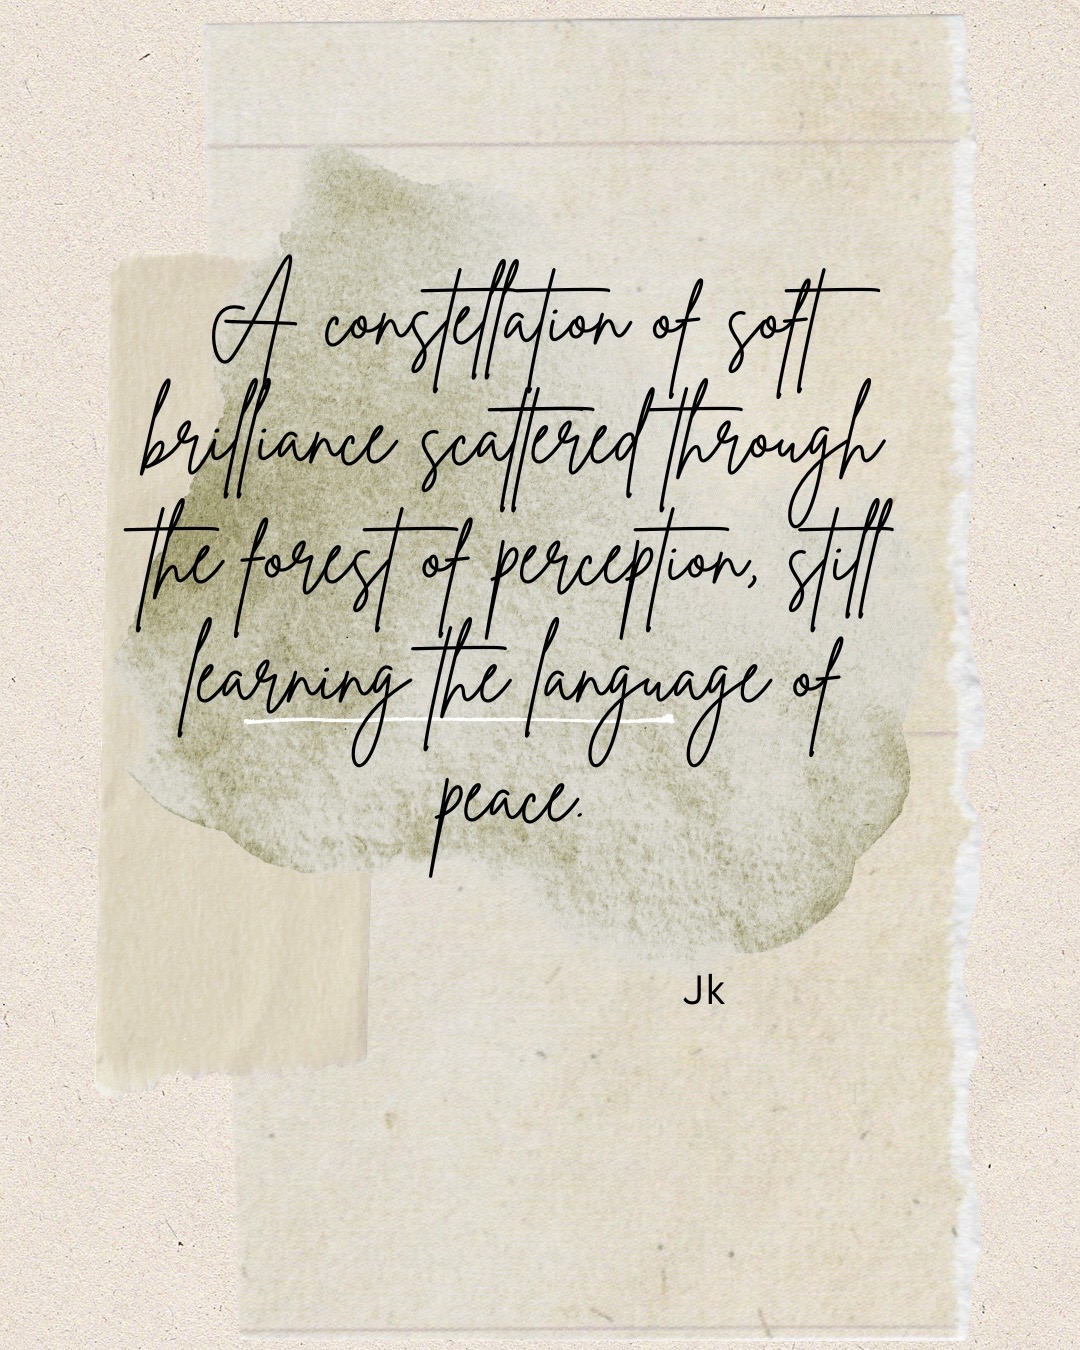 A constellation of soft
brilliance scattered through
the forest of perception, still
learning the language of
peace.
Jk